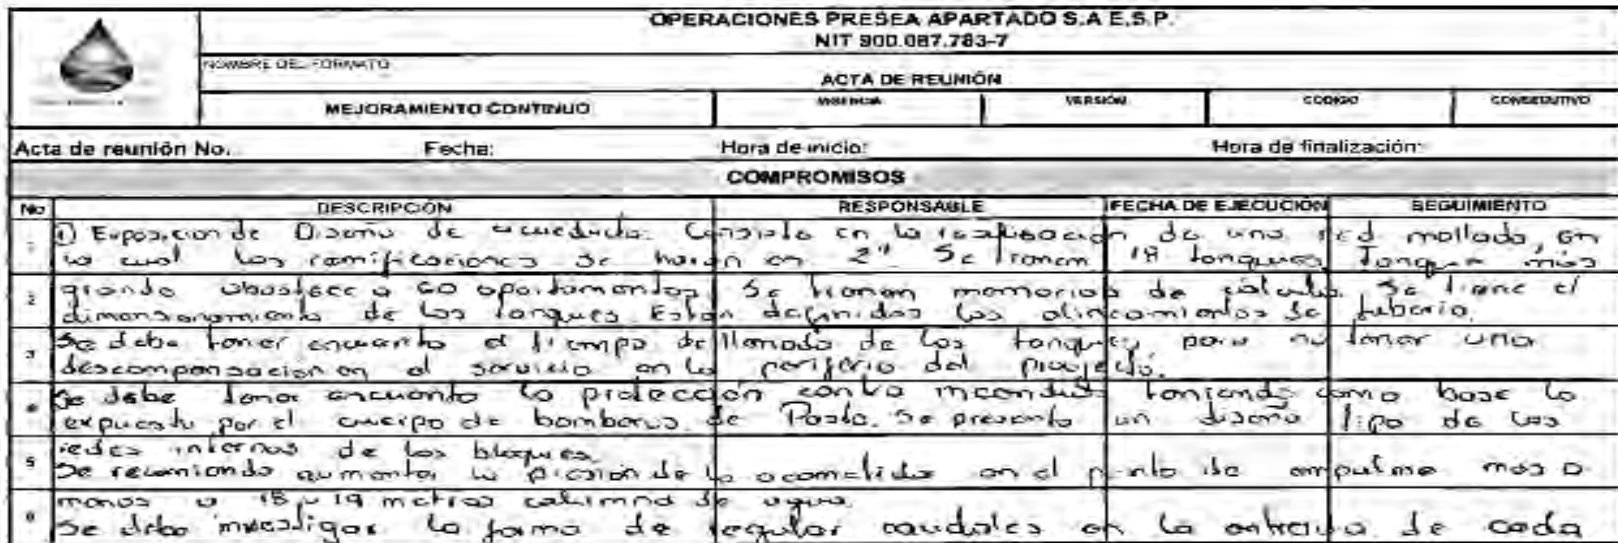 OPERACIONES PRESEA APARTADO S.A E.S.P.
NIT 900.087.783-7
NOMBRE DEL FORMATO
ACTA DE REUNIÓN
MEJORAMIENTO CONTINUO VIGENCIA VERSIÓN CODIGO CONSECUTIVO
Acta de reunión No. Fecha: Hora de inicio: Hora de finalización:
COMPROMISOS
No DESCRIPCIÓN RESPONSABLE FECHA DE EJECUCIÓN SEGUIMIENTO
1 1) Exposicion de Diseño de acueducto. Consiste en la realización de una red mallada, en
la cual las ramificaciones se harán en 2" Se tienen 18 tanques, Tanque más
2 grande abastece a 60 apartamentos, Se tienen memorias de calculo. Se tiene el
dimensionamiento de los tanques. Están definidos los alineamientos de tuberia.
3 Se debe tener encuenta el tiempo de llenado de los tanques para no tener una
descompensacion en el servicio en la periferia del proyecto.
4 Se debe tener encuenta la protección contra incendios teniendo como base lo
expuesto por el cuerpo de bomberos de Pasto. Se presenta un diseño tipo de las
5 redes internas de los bloques.
Se recomienda aumentar la presión de la acometida en el punto de empalme mas o
6 menos a 18 - 19 metros columna de agua.
Se debe investigar la forma de regular caudales en la entrega de cada